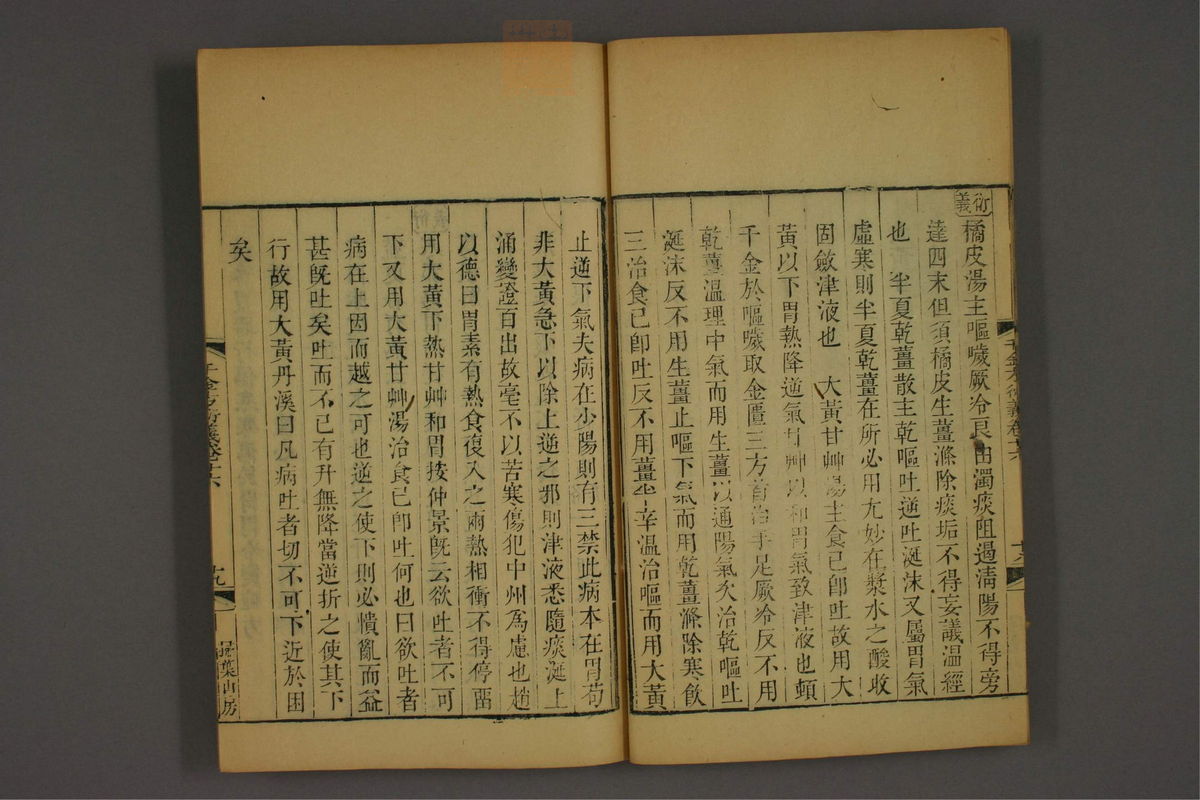 衍義
橘皮湯主嘔噦厥冷良由濁痰阻遏清陽不得旁
達四末但須橘皮生薑滌除痰垢不得妄議溫經
也 半夏乾薑散主乾嘔吐逆吐涎沫又屬胃氣
虛寒則半夏乾薑在所必用尤妙在漿水之酸收
固斂津液也 大黃甘艸湯主食已卽吐故用大
黃以下胃熱降逆氣甘艸以和胃氣致津液也頻
千金於嘔噦取金匱三方首治手足厥冷反不用
乾薑溫理中氣而用生薑以通陽氣久治乾嘔吐
涎沫反不用生薑止嘔下氣而用乾薑滌除寒飲
三治食已卽吐反不用薑半辛溫治嘔而用大黃
千金方衍義卷十六
十六
止逆下氣夫病在少陽則有三禁此病本在胃苟
非大黃急下以除上逆之邪則津液悉隨痰涎上
涌變證百出故毫不以苦寒傷犯中州爲慮也趙
以德曰胃素有熱食復入之兩熱相衝不得停畱
用大黃下熱甘艸和胃按仲景旣云欲吐者不可
下又用大黃甘艸湯治食已卽吐何也曰欲吐者
病在上因而越之可也逆之使下則必憒亂而益
甚旣吐矣吐而不已有升無降當逆折之使其下
行故用大黃丹溪曰凡病吐者切不可下近於困
矣
千金方衍義卷十六
十九
掃葉山房